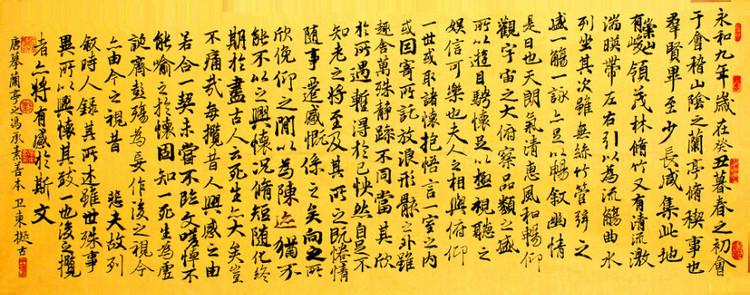 永和九年歲在癸丑暮春之初會
于會稽山陰之蘭亭脩稧事也
群賢畢至少長咸集此地
有崇山峻領茂林脩竹又有清流激
湍暎帶左右引以為流觴曲水
列坐其次雖無絲竹管弦之
盛一觴一詠亦足以暢叙幽情
是日也天朗氣清惠風和暢仰
觀宇宙之大俯察品類之盛
所以遊目騁懷足以極視聽之
娛信可樂也夫人之相與俯仰
一世或取諸懷抱悟言一室之內
或因寄所託放浪形骸之外雖
趣舍萬殊靜躁不同當其欣
於所遇暫得於己怏然自足不
知老之將至及其所之既惓情
隨事遷感慨係之矣向之所
欣俛仰之閒以為陳迹猶不
能不以之興懷況脩短隨化終
期於盡古人云死生亦大矣豈
不痛哉每攬昔人興感之由
若合一契未嘗不臨文嗟悼不
能喻之於懷固知一死生為虛
誕齊彭殤為妄作後之視今
亦由今之視昔 悲夫故列
叙時人錄其所述雖世殊事
異所以興懷其致一也後之攬
者亦將有感於斯文
唐摹蘭亭馮承素善本 卫東擬古